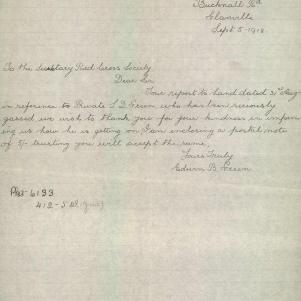 Bucknall Rd
Glanville
Sept 5 - 1918
To the Secretary Red Cross Society
Dear Sir
Your report to hand dated 31st Aug
in reference to Private L D Green who has been seriously
gassed we wish to thank you for your kindness in inform
ing us how he is getting on I am enclosing a postal note
of 5/- trusting you will accept the same,
Yours Truly
Edwin B Green
6193